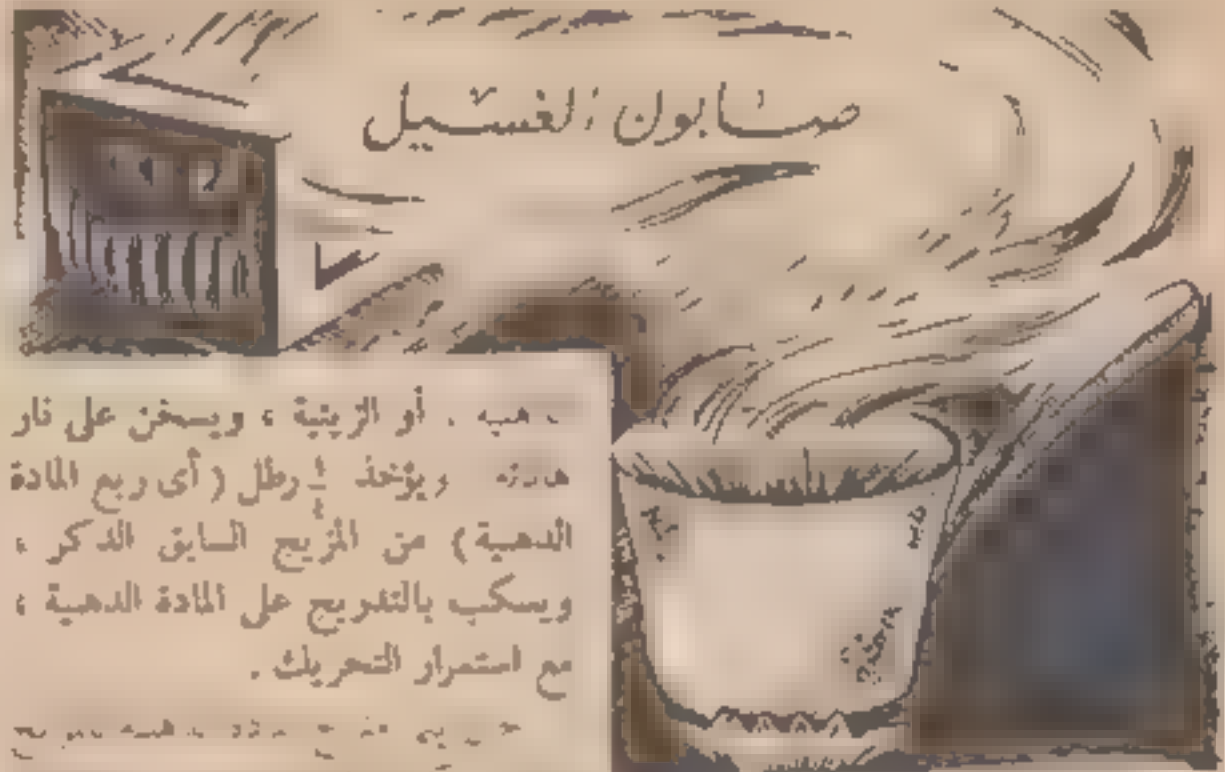 صابون الغسيل
أو الزيتية ، ويسخن على نار
ويؤخذ ¼ رطل ( أى ربع المادة
الدهنية ) من المزيج السابق الذكر ،
ويسكب بالتدريج على المادة الدهنية ،
مع استمرار التحريك .